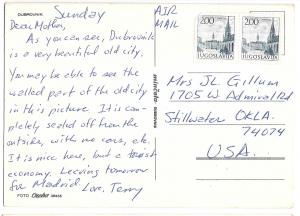 DUBROVNIK
Sunday
Dear Mother,
As you can see, Dubrovnik
is a very beautiful old city.
You may be able to see the
walled part of the old city
in this picture. It is com-
pletely sealed off from the
outside, with no cars, etc.
It is nice here, but a tourist
economy. Leaving tomorrow
for Madrid Love, Terry
FOTO
AIR
MAIL
2.00
JUGOSLAVIJA
2.00
JUGOSLAVIJA
Mrs JL Gillum
1705 W Admiral Rd
Stillwater OKLA.
74074
U.S.A.